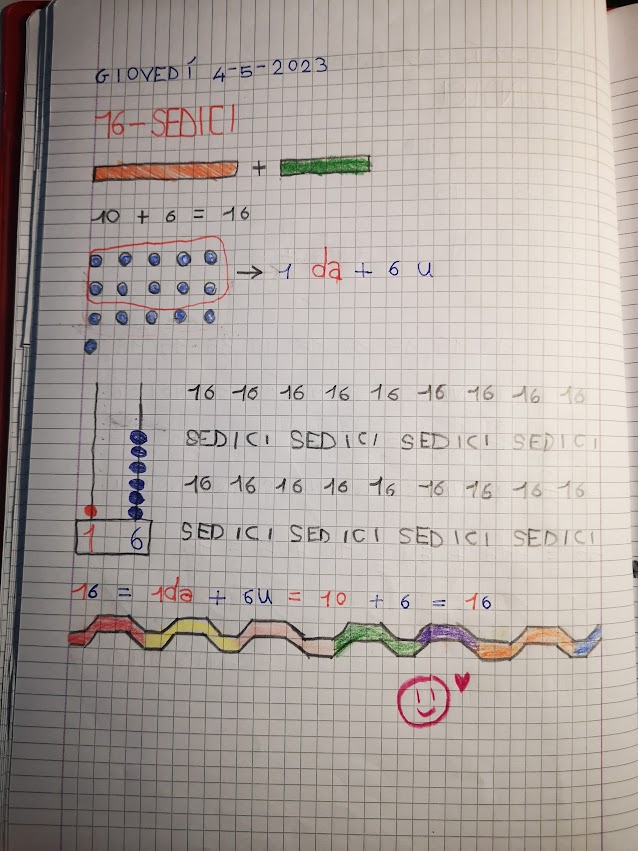 GIOVEDÍ 4-5-2023
16-SEDICI
+
10 + 6 = 16
→ 1 da + 6 u
16 16 16 16 16 16 16 16 16
SEDICI SEDICI SEDICI SEDICI
16 16 16 16 16 16 16 16 16
1 6 SEDICI SEDICI SEDICI SEDICI
16 = 1da + 6u = 10 + 6 = 16